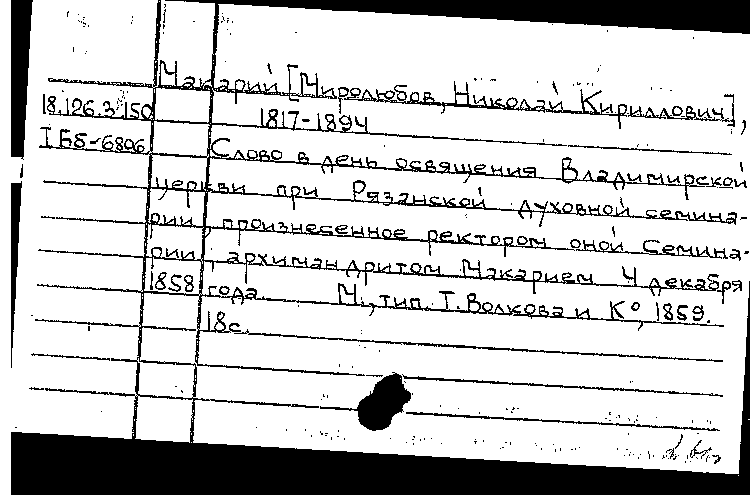 Макарий [Миролюбов, Николай Кириллович],
18.126.3.150 1817-1894
I Б5-6806 Слово в день освящения Владимирской
церкви при Рязанской духовной семина-
рии, произнесенное ректором оной Семина-
рии, архимандритом Макарием 4 декабря
1858 года. М., тип. Т. Волкова и К°, 1859.
18с.